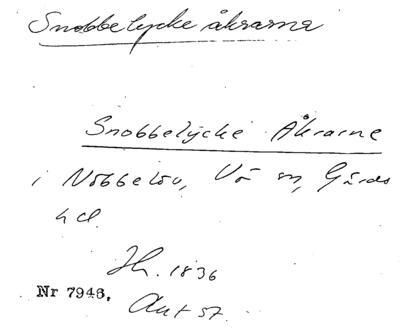 Snobbelycke åkrarna
Snobbelycke Åkrarne
i Nöbbelöv, Vä sn, Gärds
hd.
Jh. 1836
Nr 7946. Akt 57.